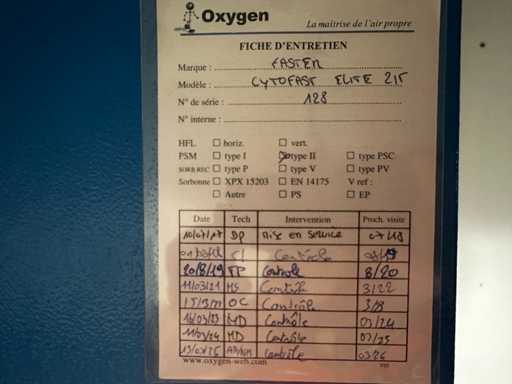 Oxygen
La maîtrise de l'air propre
FICHE D'ENTRETIEN
Marque : FASTER
Modèle : CYTOFAST ELITE 215
N° de série : 128
N° interne :
HFL ☐ horiz. ☐ vert.
PSM ☐ type I ☒ type II ☐ type PSC
SORB REC ☐ type P ☐ type V ☐ type PV
Sorbonne ☐ XPX 15203 ☐ EN 14175 V ref :
☐ Autre ☐ PS ☐ EP
Date Tech Intervention Proch. visite
10/07/17 DP Mise en service 07/18
Contrôle
20/8/19 Contrôle 8/20
11/03/21 MS Contrôle 3/22
OC Contrôle
16/03/23 MD Contrôle 03/24
11/03/24 MD Contrôle 03/25
Contrôle 03/26
www.oxygen-web.com